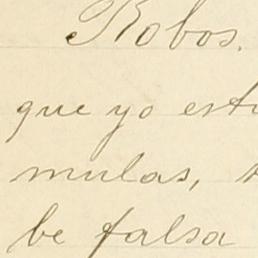 Robos.
que yo est
mulas,
be falsa